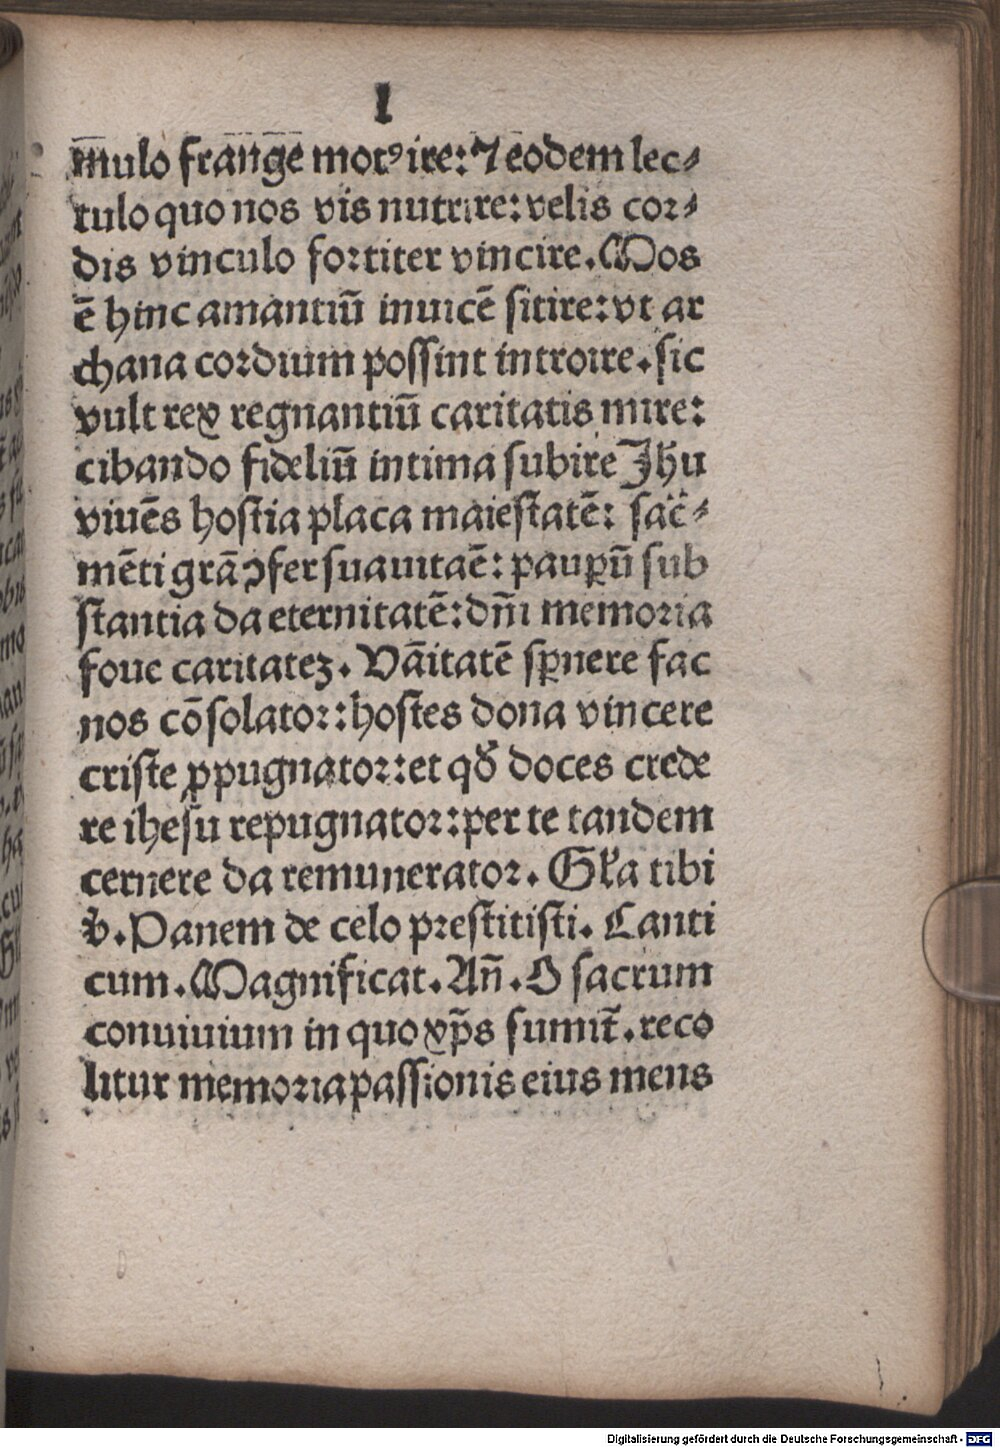 I
mulo frange motꝰ ire: ⁊ eodem lec⸗
tulo quo nos vis nutrire: velis coꝛ⸗
dis vinculo foꝛtiter vincire. Mos
ē hinc amantiū inuicē ſitire: vt ar
chana coꝛdium poſſint introire. ſic
vult rex regnantiū caritatis mire:
cibando fideliū intima ſubire Jhu
viuēs hoſtia placa maieſtatē: ſac̄⸗
mēti grā ꝯfer ſuauitaē: pauꝑū ſub
ſtantia da eternitatē: dn̄i memoꝛia
foue caritateꝫ. Vāitatē ſꝑnere fac
nos cōſolatoꝛ: hoſtes dona vincere
criſte ꝓpugnatoꝛ: et qd̕ doces crede
re iheſu repugnatoꝛ: per te tandem
cernere da remuneratoꝛ. Gł̕a tibi
v̕. Panem de celo pꝛeſtitiſti. Canti
cum. Magnificat. An̄. O ſacrum
conuiuium in quo xp̄s ſumit̄. reco
litur memoꝛia paſſionis eius mens
Digitalisierung gefördert durch die Deutsche Forschungsgemeinschaft - DFG